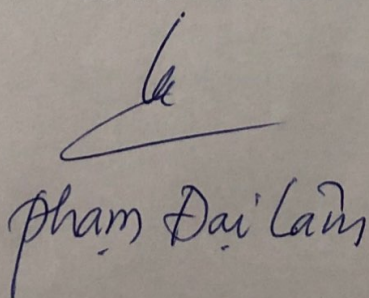 Phạm Đại Lâm